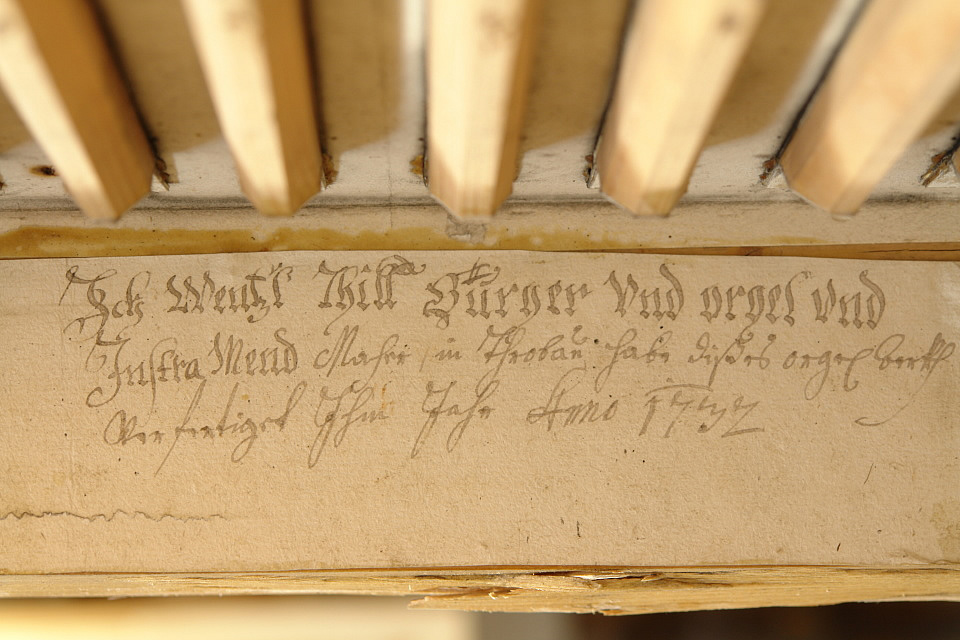 Ich Wentzl Thill Bürger Vnd orgel vnd
Instra Mend Macher in Throbau habe dißes orgel werkh
Verfertiget Ihm Jahr Anno